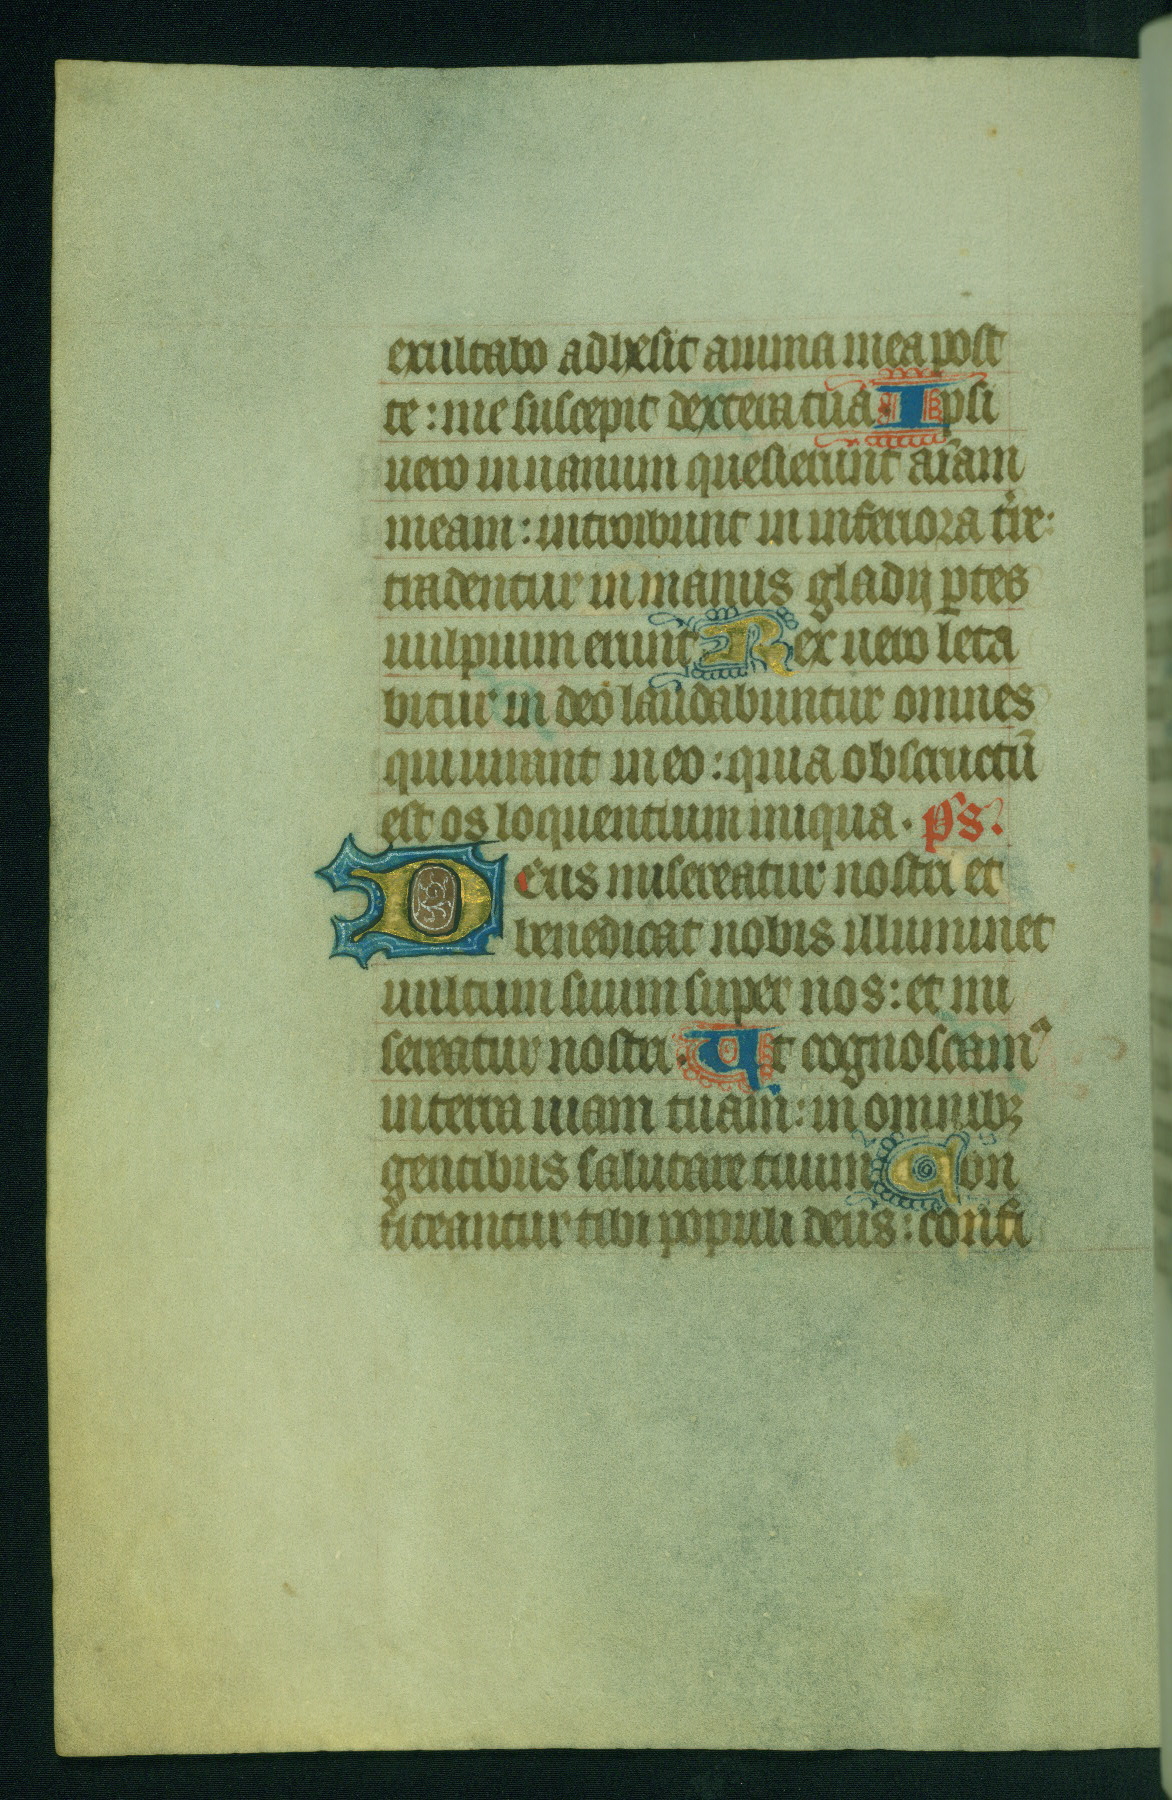 exultabo adhesit anima mea post
te : me suscepit dextera tua Ipsi
uero in uanum quesierunt aīam
meam : introibunt in inferiora tīre :
tradentur in manus gladij ptes
uulpium erunt Rex uero leta
bitur in deo laudabuntur omnes
qui iurant in eo : quia obstructū
est os loquentium iniqua · ps.
Deus misereatur nostri et
benedicat nobis illuminet
uultum suum super nos : et mi
sereatur nostri · Ut cognoscamꝰ
in terra uiam tuam : in omnibꝫ
gentibus salutare tuum Con
fiteantur tibi populi deus : confi